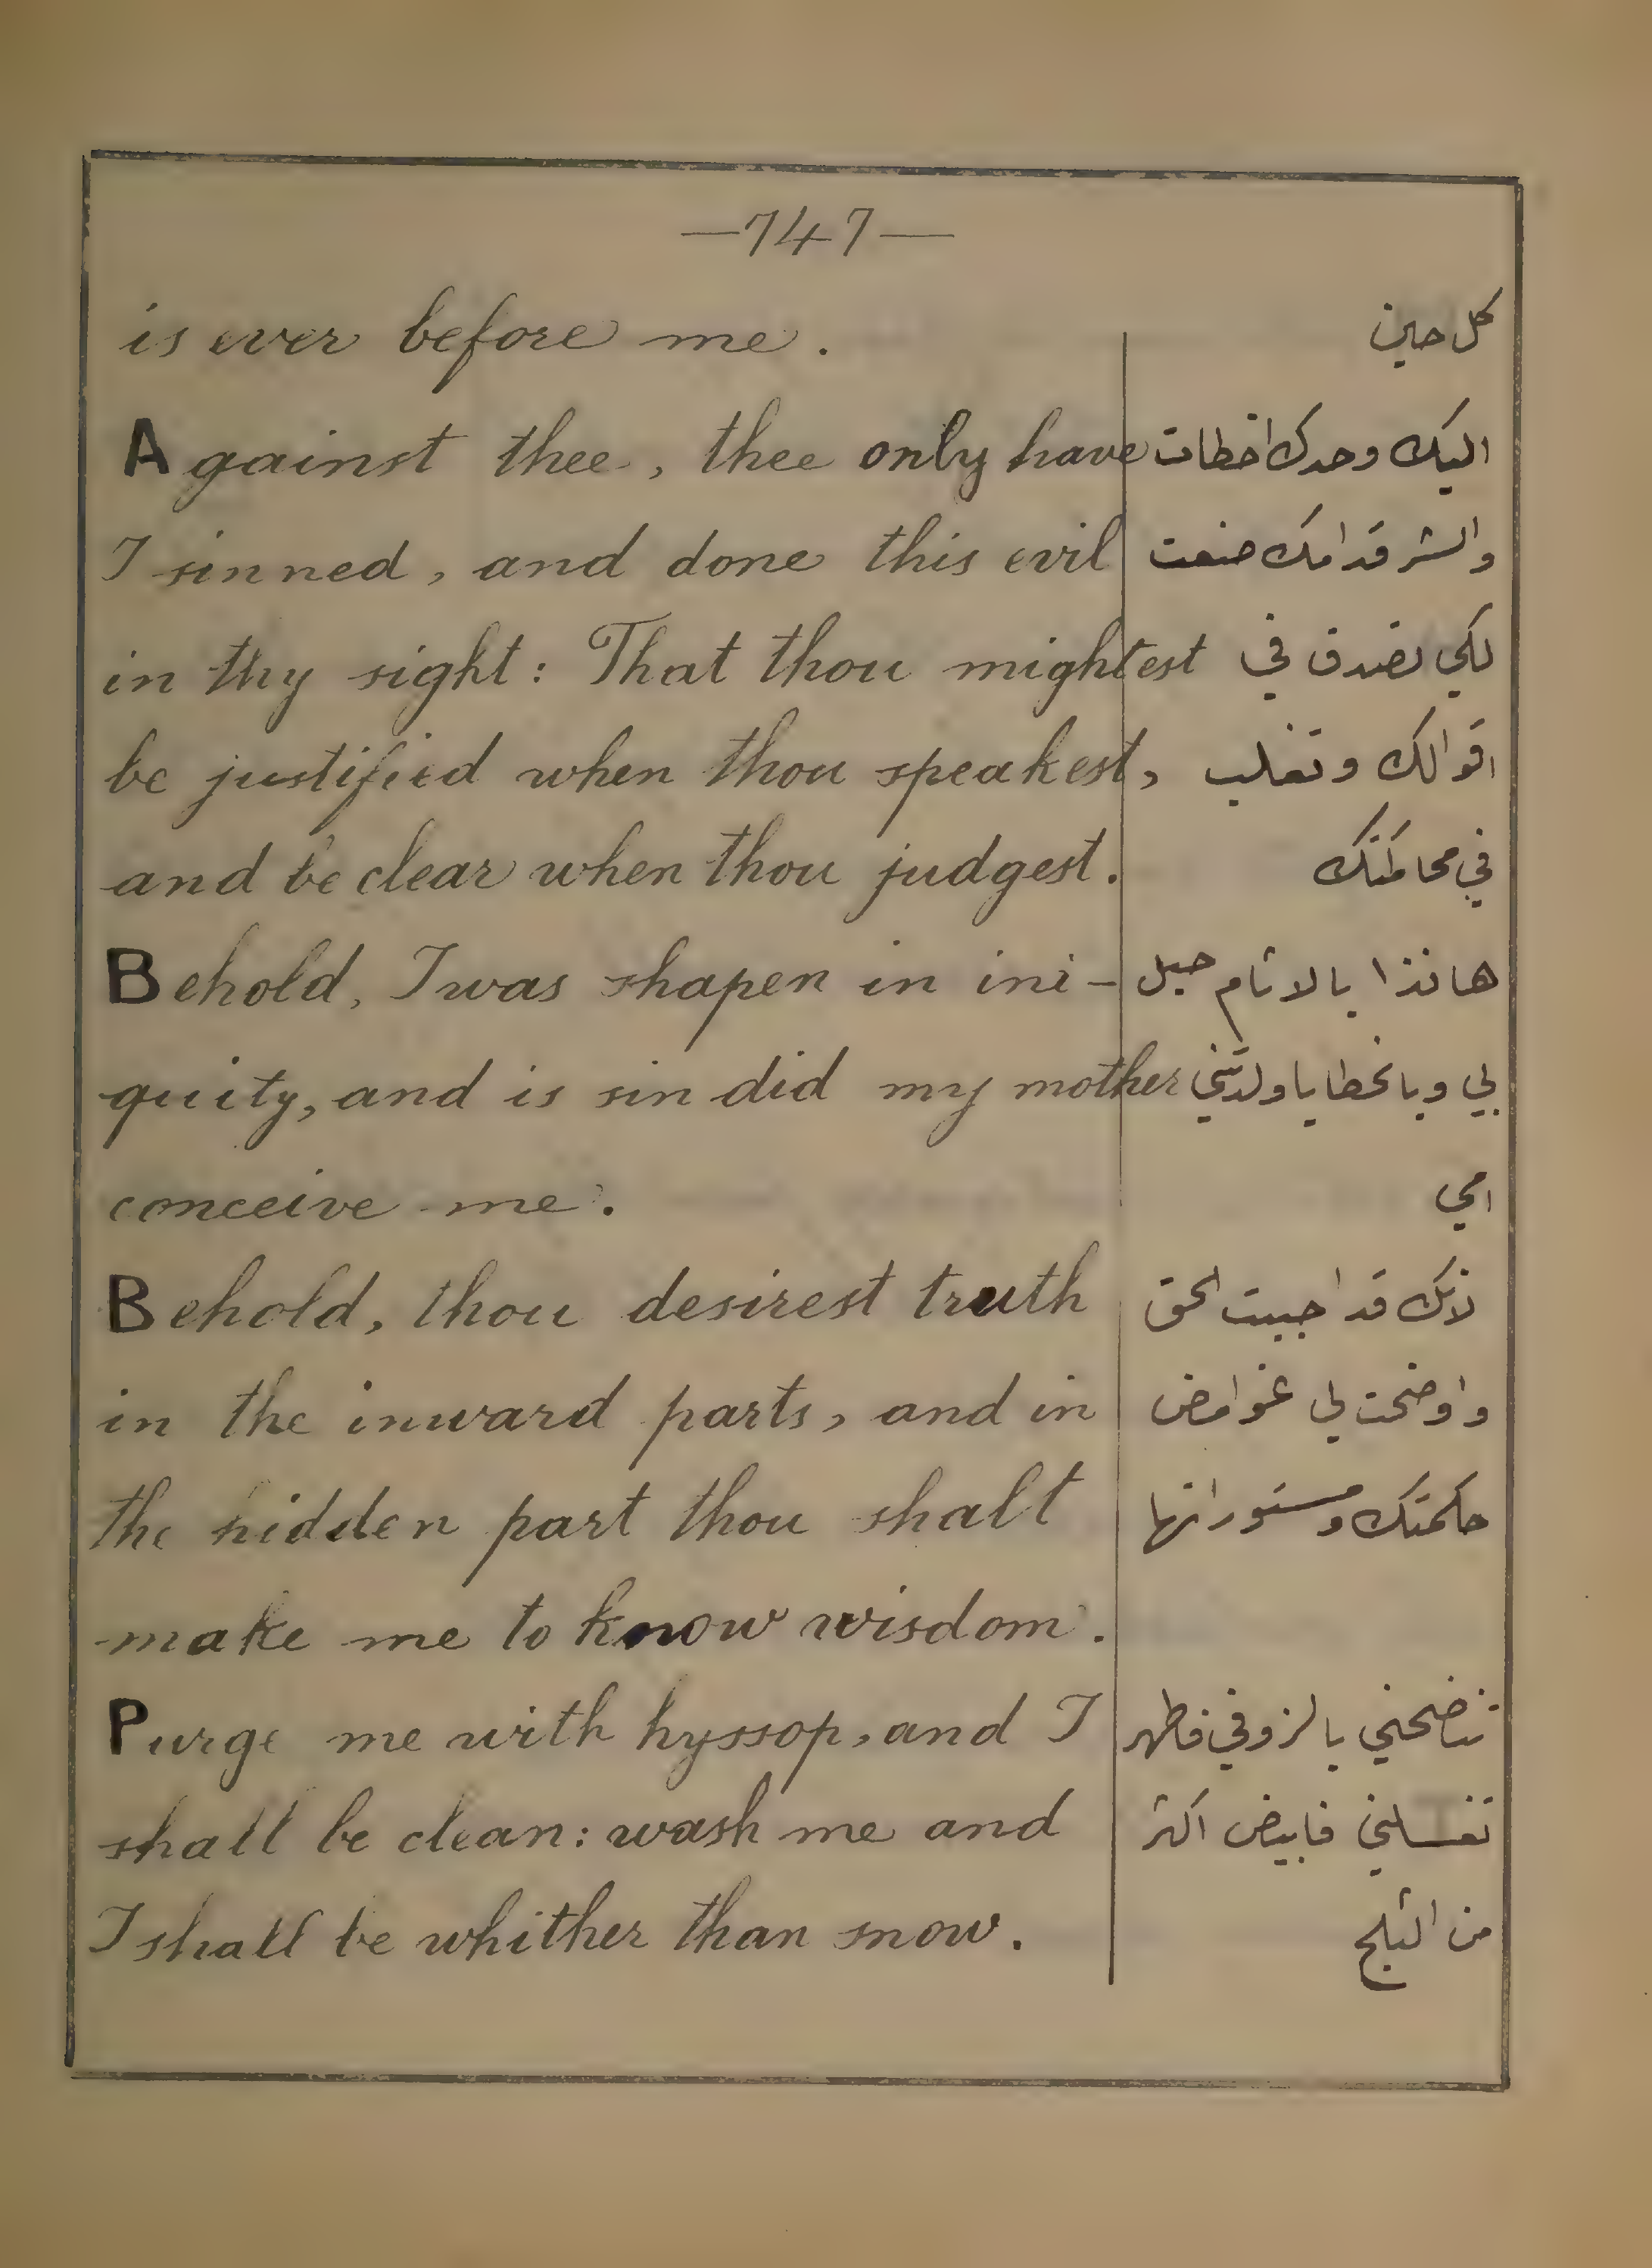 —747—
is ever before me.
كل حين
Against thee, thee only have
اليك وحدك اخطات
I sinned, and done this evil
والشر قدامك صنعت
in thy sight: That thou mightest
لكي تصدق في
be justified when thou speakest,
اقوالك وتغلب
and be clear when thou judgest.
في محاكمتك
Behold, I was shapen in ini-
هانذا بالاثام حبل
quity, and is sin did my mother
بي وبالخطايا ولدتني
conceive me.
امي
Behold, thou desirest truth
لانك قد احببت الحق
in the inward parts, and in
واوضحت لي غوامض
the hidden part thou shalt
حكمتك ومستوراتها
make me to know wisdom.
Purge me with hyssop, and I
تنضحني بالزوفي فاطهر
shall be clean: wash me and
تغسلني فابيض اكثر
I shall be whither than snow.
من الثلج